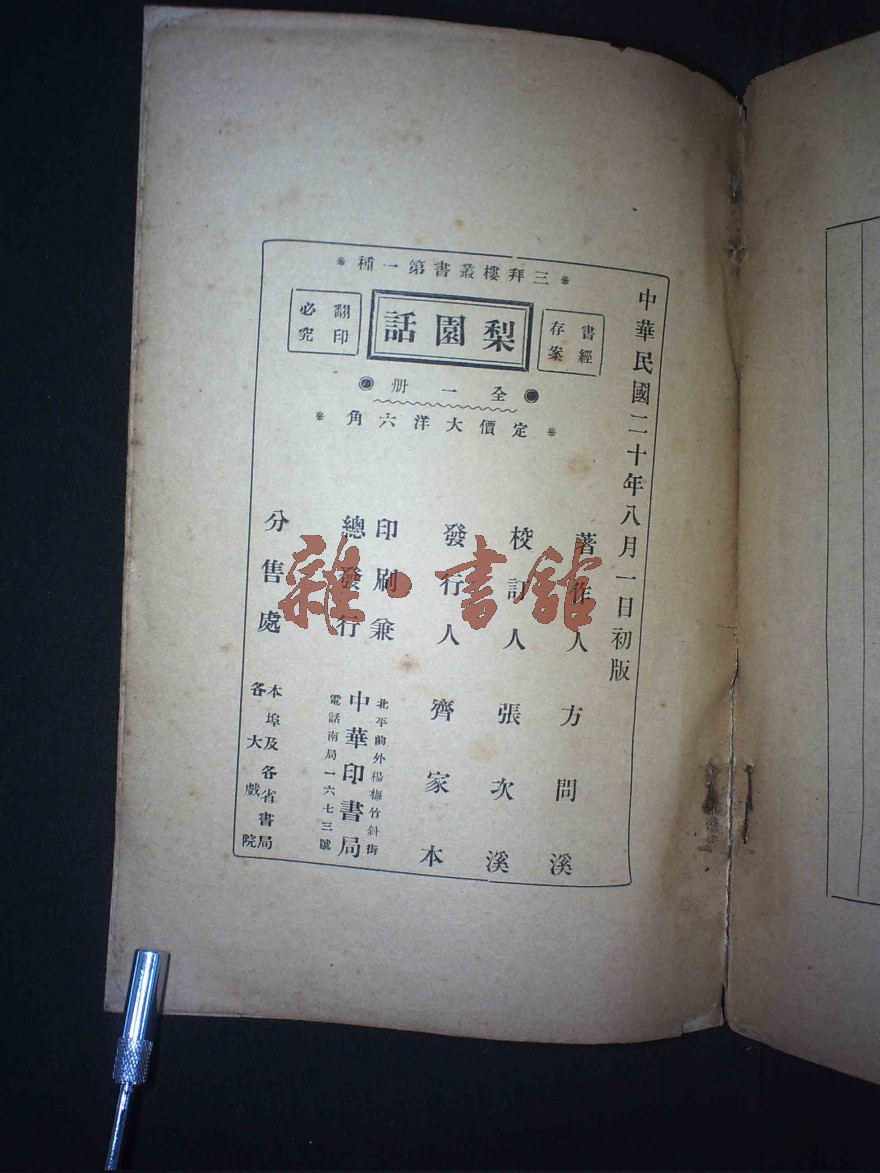 中華民國二十年八月一日初版
＊三拜樓叢書第一種＊
書經存案
梨園話
翻印必究
◉全一册◉
＊定價大洋六角＊
著作人 方問溪
校訂人 張次溪
發行人 齊家本
印刷兼總發行
北平前外楊梅竹斜街
中華印書局
電話南局一六七三號
分售處
本埠及各省書局
各大戲院
雜·書館